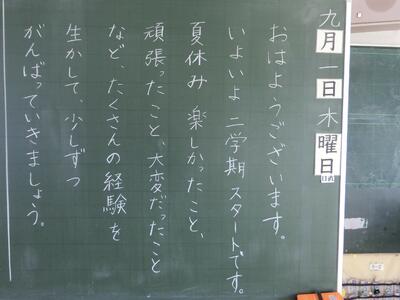 九月一日木曜日
おはようございます。
いよいよ二学期スタートです。
夏休み 楽しかったこと、
頑張ったこと、大変だったこと
など、たくさんの経験を
生かして、少しずつ
がんばっていきましょう。